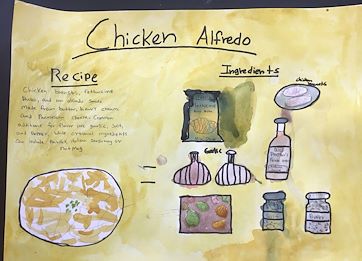 Chicken Alfredo
Recipe
Chicken breasts, fettuccine
Pasta, and an alfredo Sauce
made from butter, heavy cream
and Parmesan cheese. Common
additions for flavor are garlic, Salt,
and Pepper, while optional ingredients
can include Parsley, Italian Seasoning or
Nutmeg
Ingredients
chicken
Fettuccine
Garlic
=